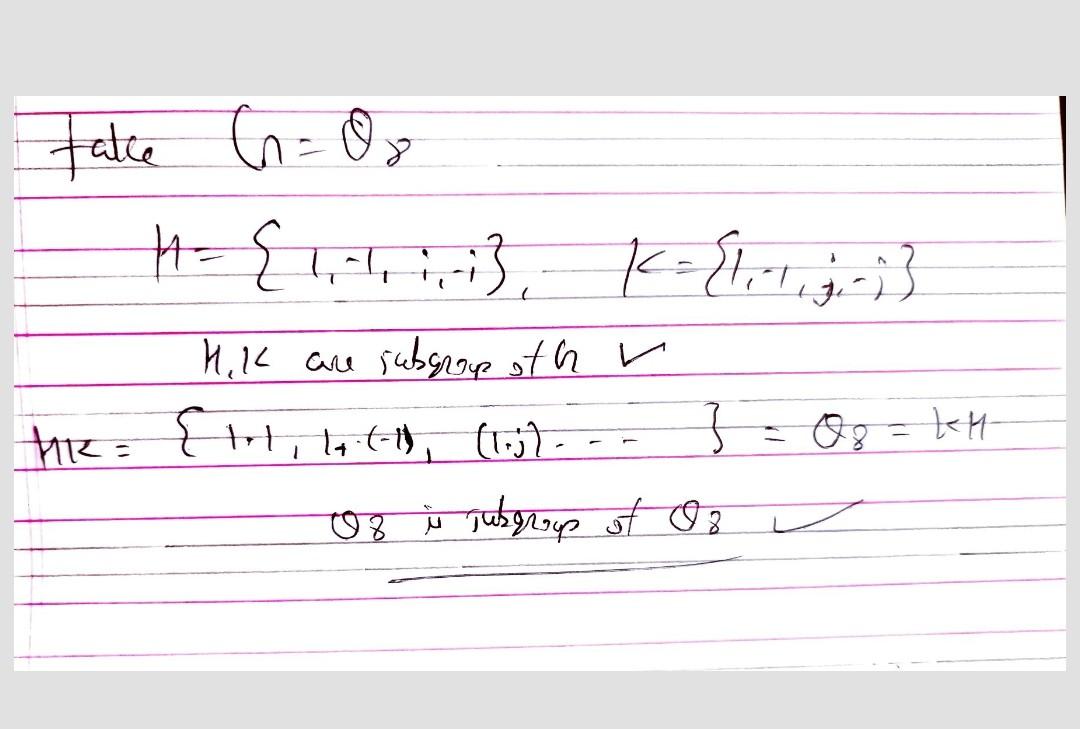 Take G = Q8
H = { 1, -1, i, -i }, K = { 1, -1, j, -j }
H, K are subgroup of G ✓
HK = { 1·1, 1·(-1), (1·j) - - - - } = Q8 = KH
Q8 is subgroup of Q8 ✓